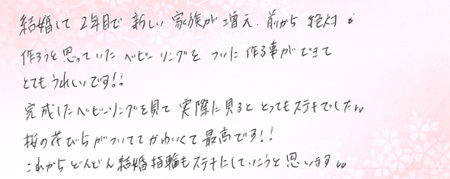 結婚して2年目で新しい家族が増え、前から絶対
作ろうと思っていたベビーリングをついに作る事ができて
とてもうれしいです!!
完成したベビーリングを見て実際に見るととってもステキでした。
桜の花びらがついててかわいくて最高です!!
これからどんどん結婚指輪もステキにしていこうと思います。